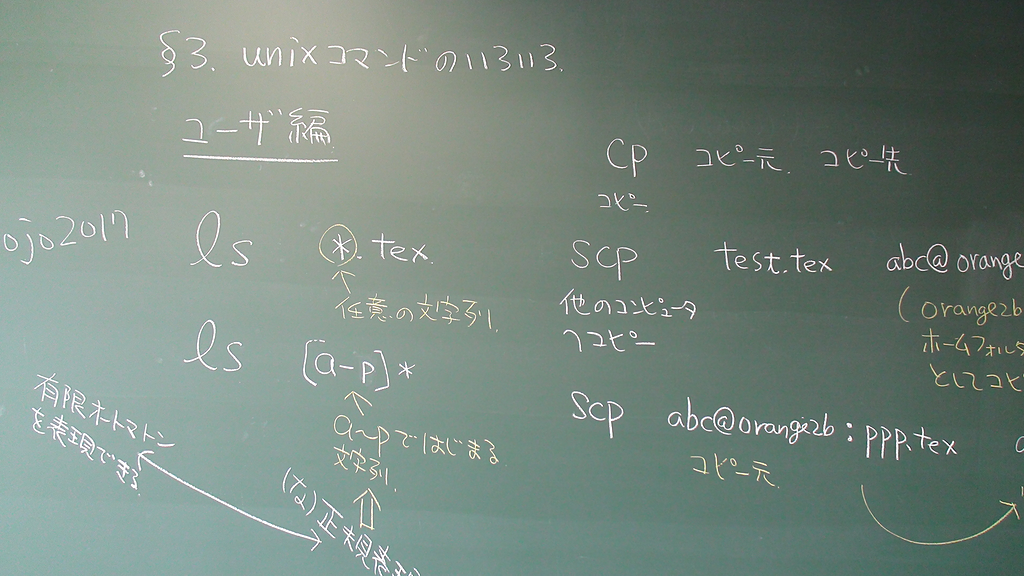 §3. unixコマンドのいろいろ.
ユーザ編
ojo2017
ls *.tex
任意の文字列.
ls [a-p]*
a~pではじまる
文字列.
有限オートマトン
を表現できる
(な)正規表現
cp コピー元 コピー先
コピー
scp test.tex abc@orange
他のコンピュータ
へコピー
(orange2b
ホームフォル
としてコピ
scp abc@orange2b:ppp.tex
コピー元